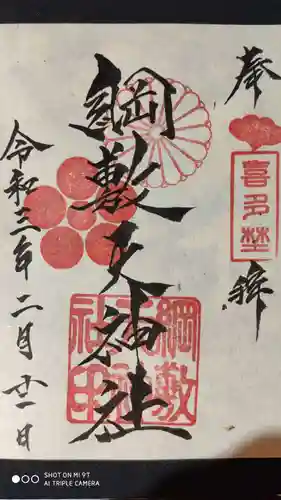 奉
喜多埜
拝
綱敷天神社
綱敷天神社印
令和三年二月廿一日
SHOT ON MI 9T
AI TRIPLE CAMERA